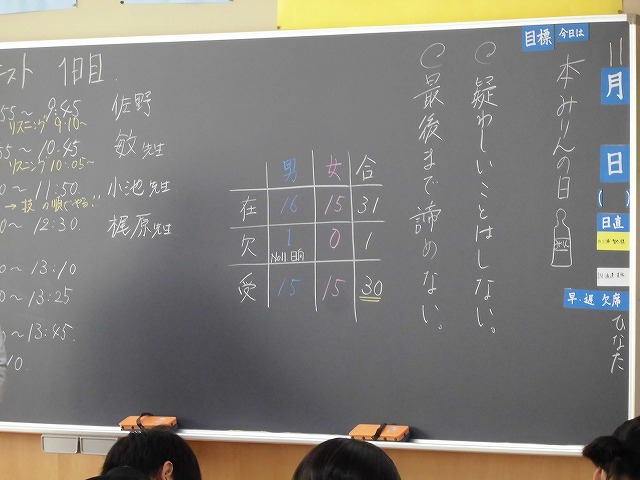 目標
今日は
本みりんの日
11月
日
(　)
日直
早・遅 欠席
ひなた
疑わしいことはしない。
最後まで諦めない。
男 女 合
在 16 15 31
欠 1 0 1
No.11 日向
受 15 15 30
スト 1日目.
55～9:45 佐野
リスニング 9:10～
55～10:45 敏先生
リスニング 10:05～
0～11:50 小池先生
0～12:30. 梶原先生
0～13:10
0～13:25
0～13:45.
10.